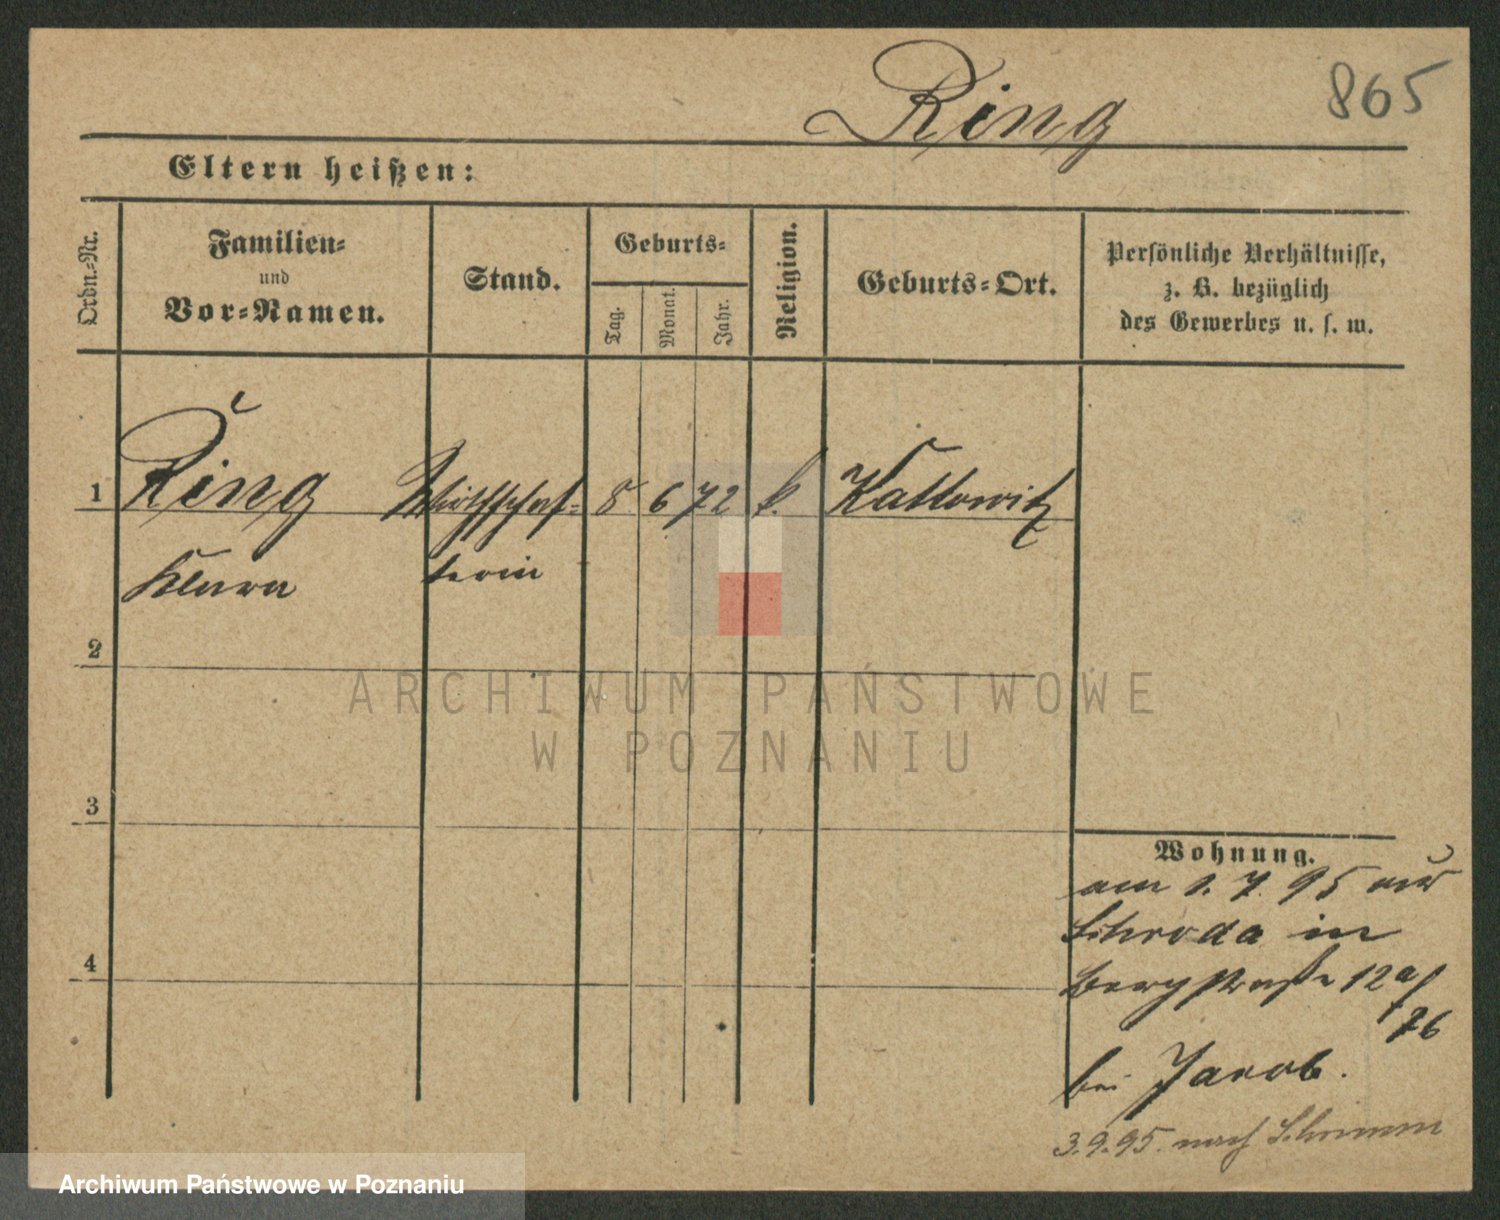 Ring 865
Eltern heißen:
Ordn.-Nr.
Familien-
und
Vor-Namen.
Stand.
Geburts-
Tag.
Monat.
Jahr.
Religion.
Geburts-Ort.
Persönliche Verhältnisse,
z. B. bezüglich
des Gewerbes u. s. w.
1 Ring Wirthschaf- 8 6 72 k. Kattowitz
Klara terin
2
ARCHIWUM PAŃSTWOWE
W POZNANIU
3
Wohnung.
am 1. 7. 95 aus
Schroda in
Bergstraße 12a/
76
bei Jacob.
3.9.95. nach Schrimm
4
Archiwum Państwowe w Poznaniu